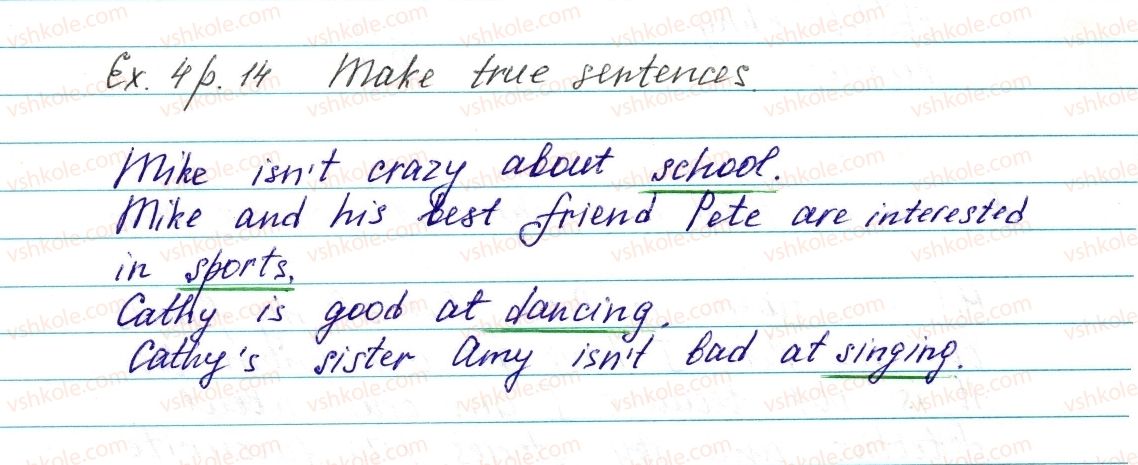 Ex. 4 p. 14 Make true sentences.
Mike isn't crazy about school.
Mike and his best friend Pete are interested
in sports.
Cathy is good at dancing.
Cathy's sister Amy isn't bad at singing.